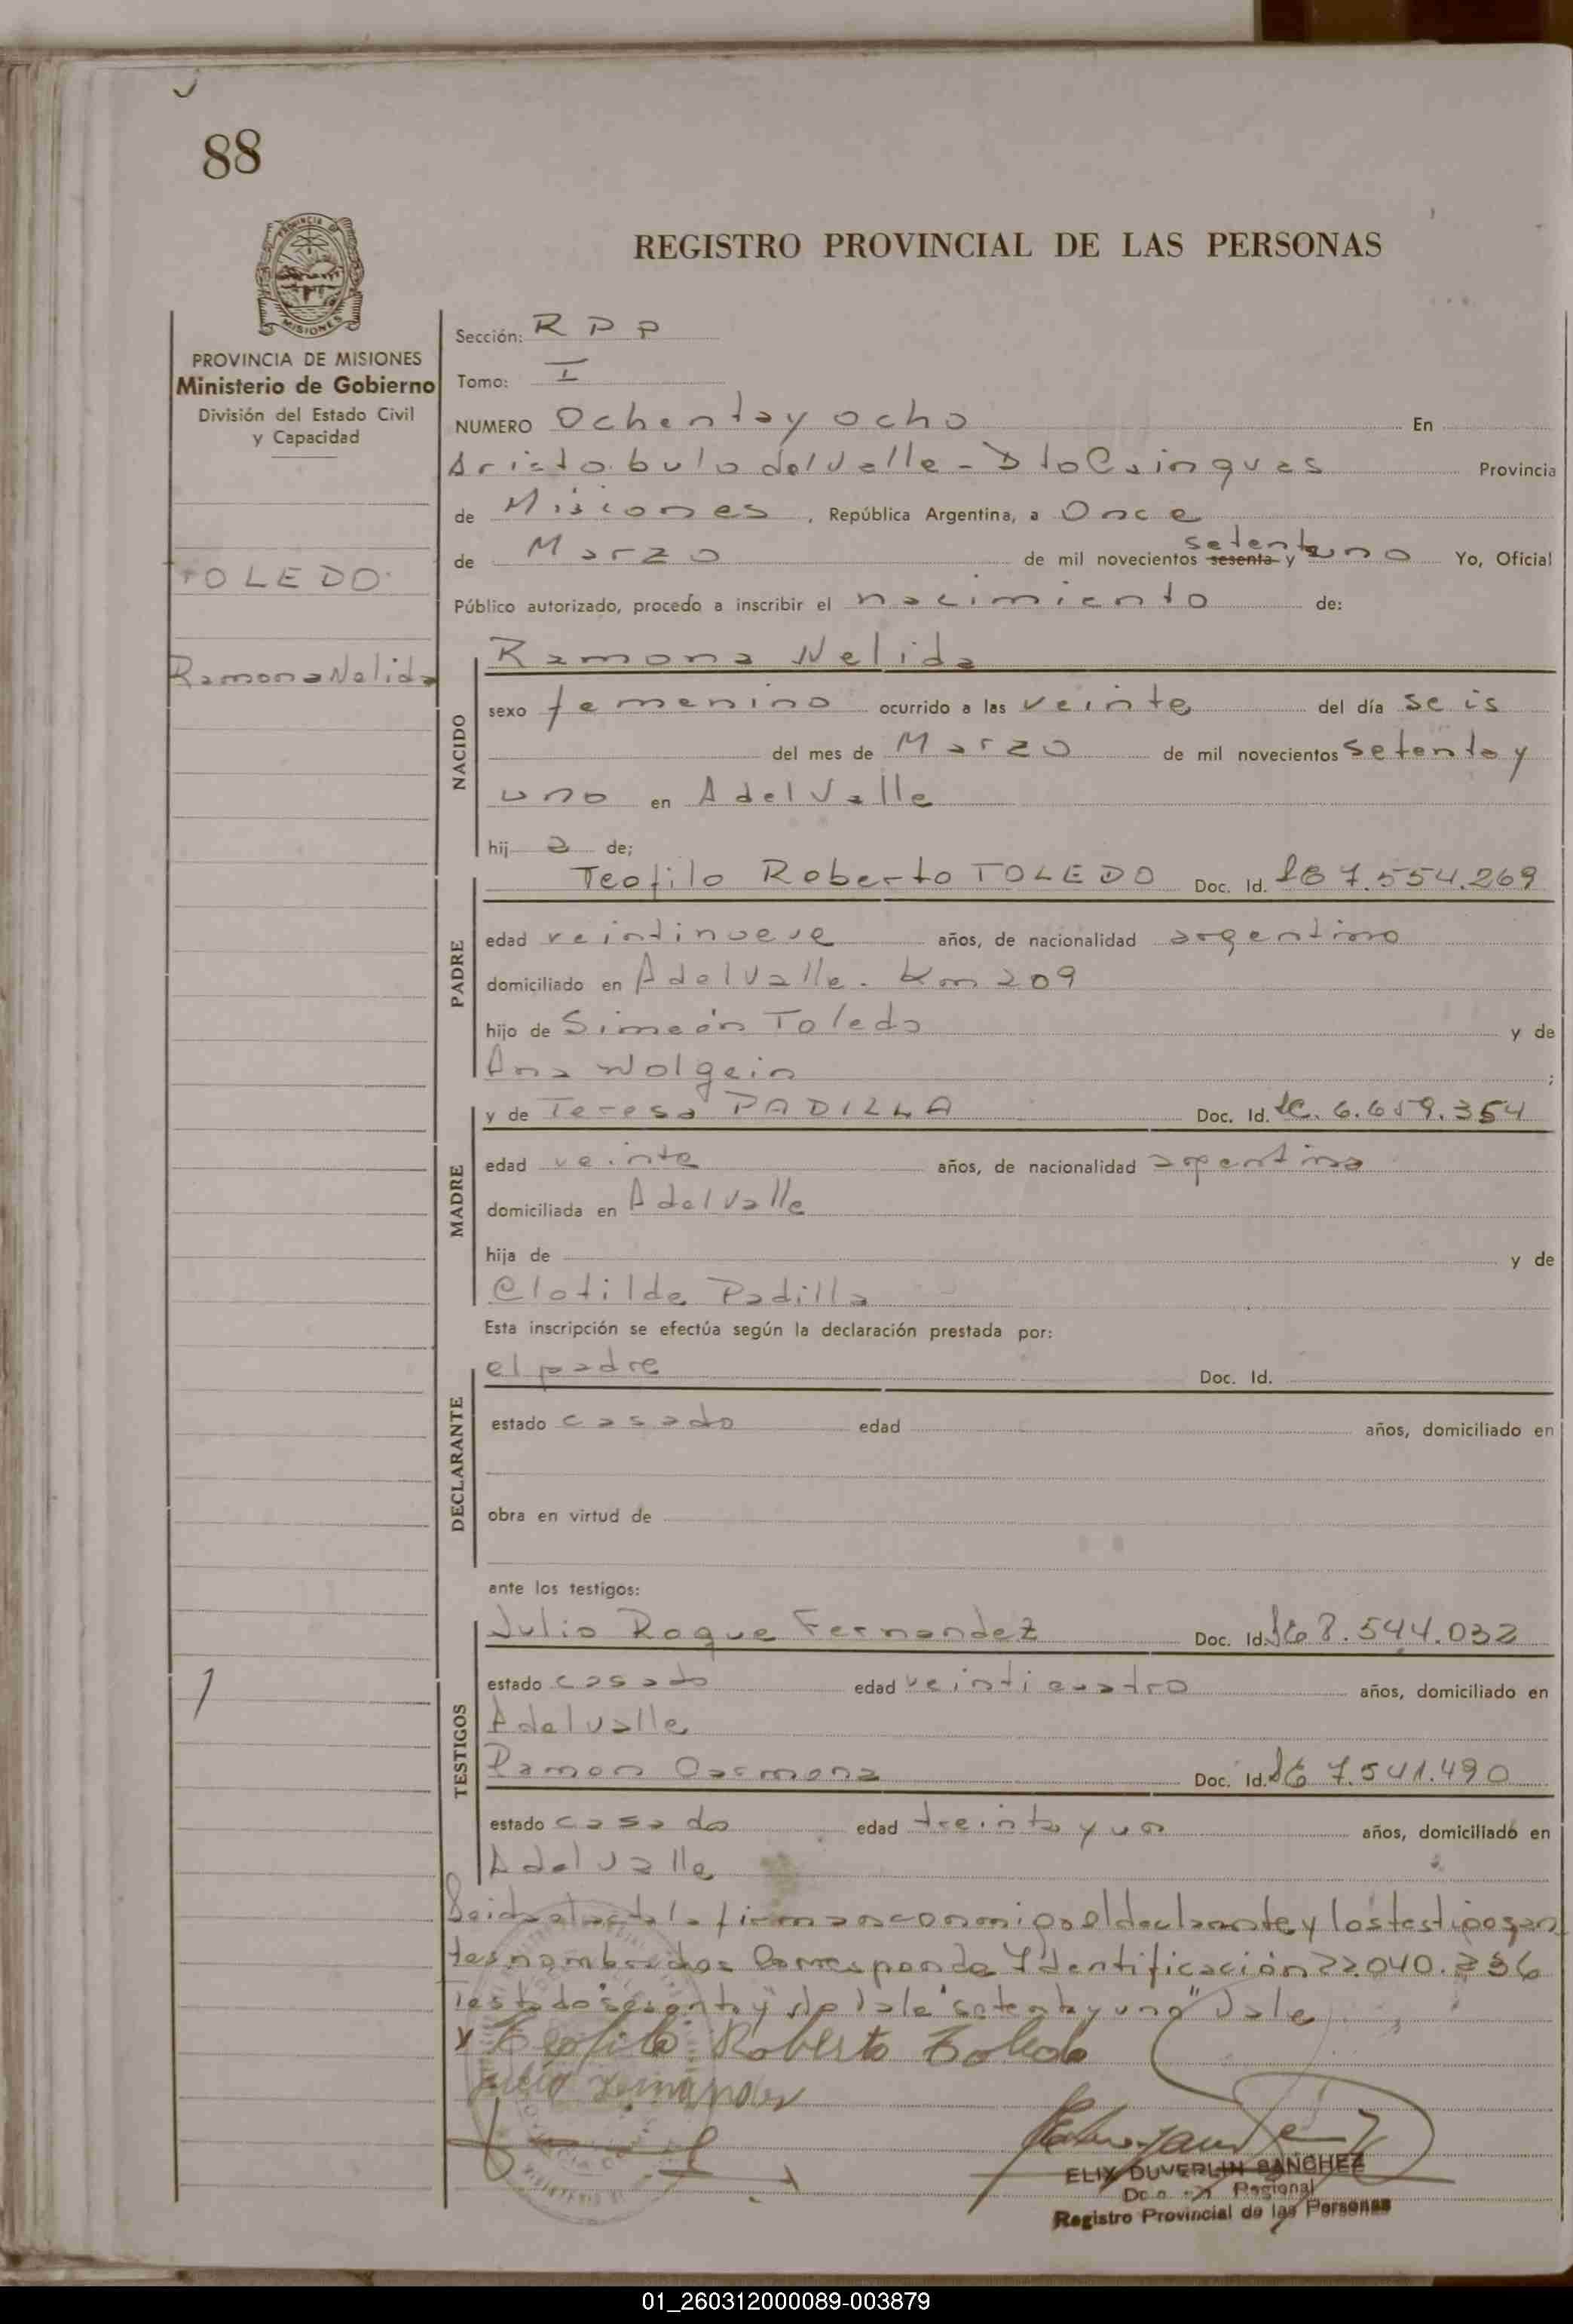 88
REGISTRO PROVINCIAL DE LAS PERSONAS
PROVINCIA DE MISIONES
Ministerio de Gobierno
División del Estado Civil
y Capacidad
TOLEDO
Ramona Nelida
1
Sección: R P P
Tomo: I
NUMERO Ochenta y ocho En
Aristobulo del Valle - Dto Cainguas Provincia
de Misiones, República Argentina, a Once
de Marzo de mil novecientos sesenta y setenta uno Yo, Oficial
Público autorizado, procedo a inscribir el nacimiento de:
NACIDO
Ramona Nelida
sexo femenino ocurrido a las veinte del día seis
del mes de Marzo de mil novecientos setenta y
uno en A del Valle
hij a de;
PADRE
Teofilo Roberto TOLEDO Doc. Id. 7.554.269
edad veintinueve años, de nacionalidad argentino
domiciliado en A del Valle. Km 209
hijo de Simeón Toledo y de
Ana Wolgein ;
MADRE
y de Teresa PADILLA Doc. Id. LC. 6.659.354
edad veinte años, de nacionalidad argentina
domiciliada en A del Valle
hija de y de
Clotilde Padilla
Esta inscripción se efectúa según la declaración prestada por:
DECLARANTE
el padre Doc. Id.
estado casado edad años, domiciliado en
obra en virtud de
ante los testigos:
TESTIGOS
Julio Roque Fernandez Doc. Id. 8.544.032
estado casado edad veinticuatro años, domiciliado en
A del Valle
Ramon Carmona Doc. Id. 7.541.490
estado casado edad treinta y un años, domiciliado en
A del Valle
Leida el acta la firman conmigo el declarante y los testigos an
tes nombrados Corresponde Identificación 22.040.
Testado "sesenta y" no vale "setenta y uno" Vale
Teofilo Roberto Toledo
Julio Fernandez
ELIX DUVERLIN SANCHEZ
Regional
Registro Provincial de las Personas
01_260312000089-003879